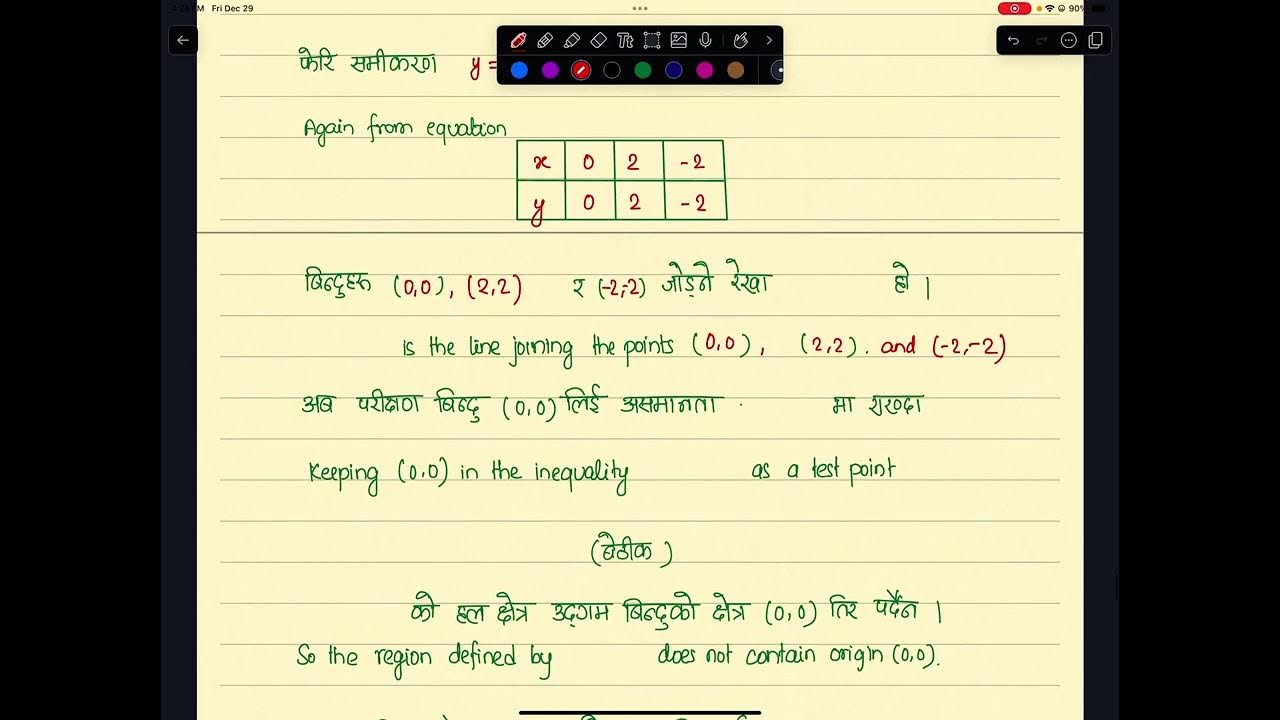 4:26 PM Fri Dec 29
90%
फेरि समीकरण y =
Again from equation
x 0 2 -2
y 0 2 -2
बिन्दुहरू (0,0), (2,2) र (-2,-2) जोड्ने रेखा हो।
is the line joining the points (0,0), (2,2). and (-2,-2)
अब परीक्षण बिन्दु (0,0) लिई असमानता मा राख्दा
Keeping (0,0) in the inequality as a test point
(बेठीक)
को हल क्षेत्र उद्गम बिन्दुको क्षेत्र (0,0) तिर पर्दैन।
So the region defined by does not contain origin (0,0).